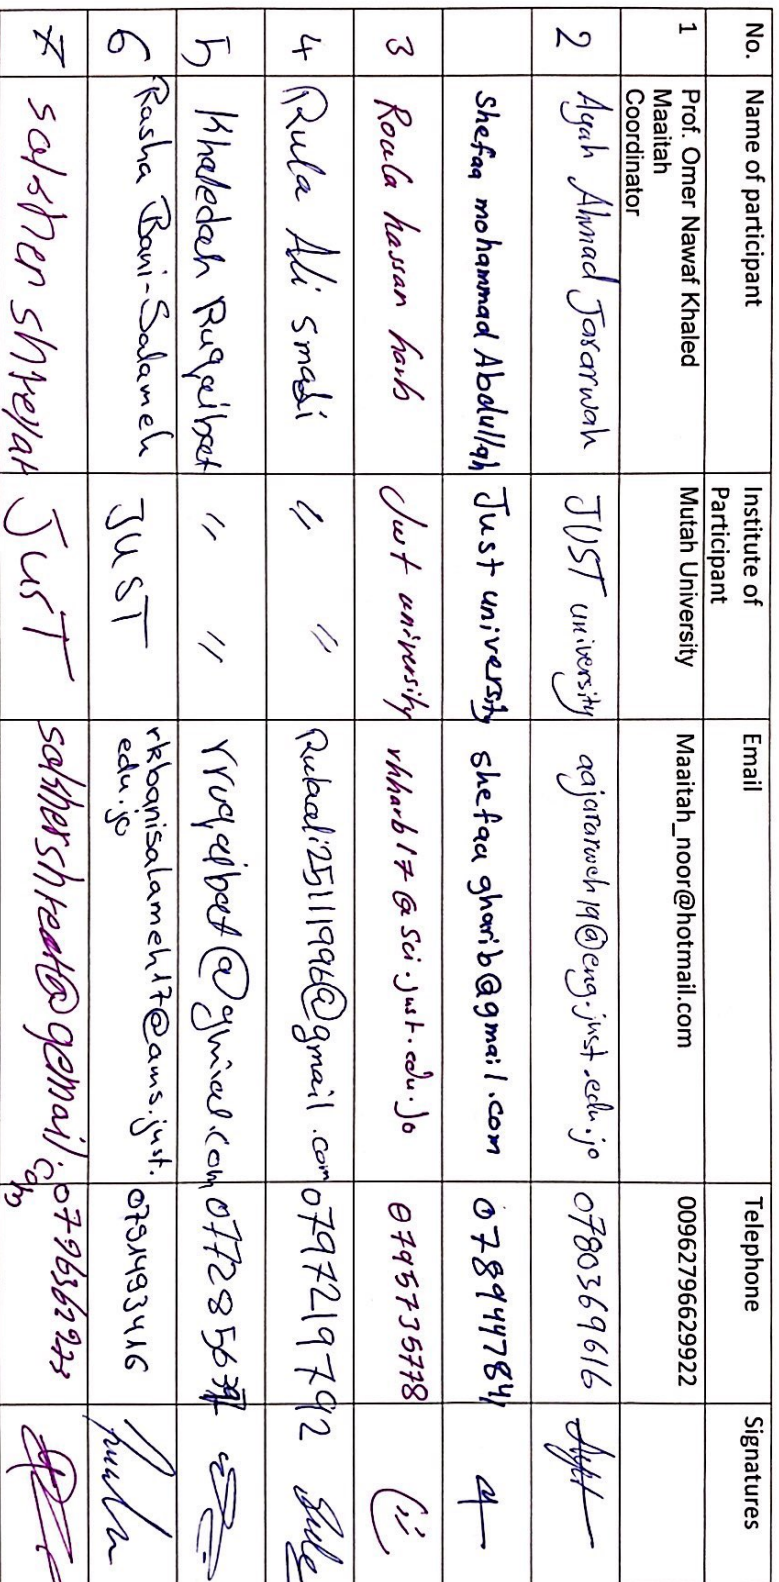 No. Name of participant Institute of Participant Email Telephone Signatures
1 Prof. Omer Nawaf Khaled Maaitah Coordinator Mutah University Maaitah_noor@hotmail.com 00962796629922
2 Ayah Ahmad Jararwah JUST university aajararweh19@eng.just.edu.jo 0780369616
Shefaa mohammad Abdullah Just university shefaa gharib@gmail.com
3 Roula hassan harb Just university rhharb17@sci.just.edu.jo 0795735778
4 Rula Ali smadi " " Rulaali25111996@gmail.com 0797219792
5 Khaledah Ruqaibat " "
6 Rasha Bani-Salameh JUST rkbanisalameh17@ams.just.edu.jo 0791493416
7 JUST